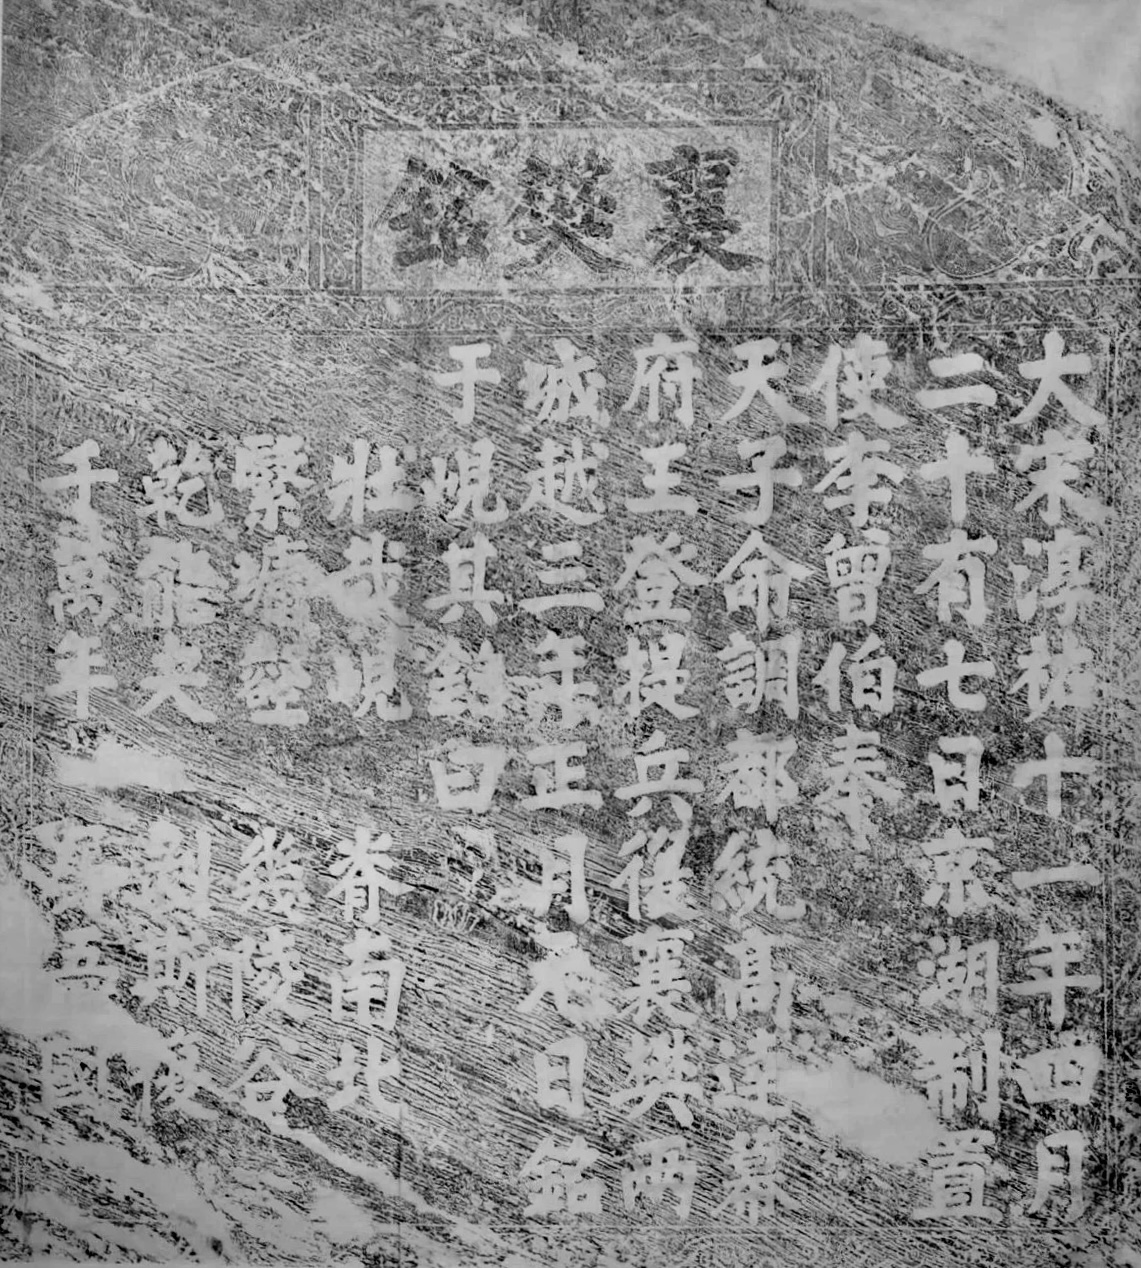 襄樊銘
大宋淳祐十一年四月
二十有七日京湖制置
使李曾伯奉
天子命調都統高達幕
府王登提兵復襄樊兩
城越三年正月元日銘
于峴其銘曰
壯哉峴 脊南北
繄墉壑 幾陵谷
乾能夬 剝斯復
千萬年 鞏吾國